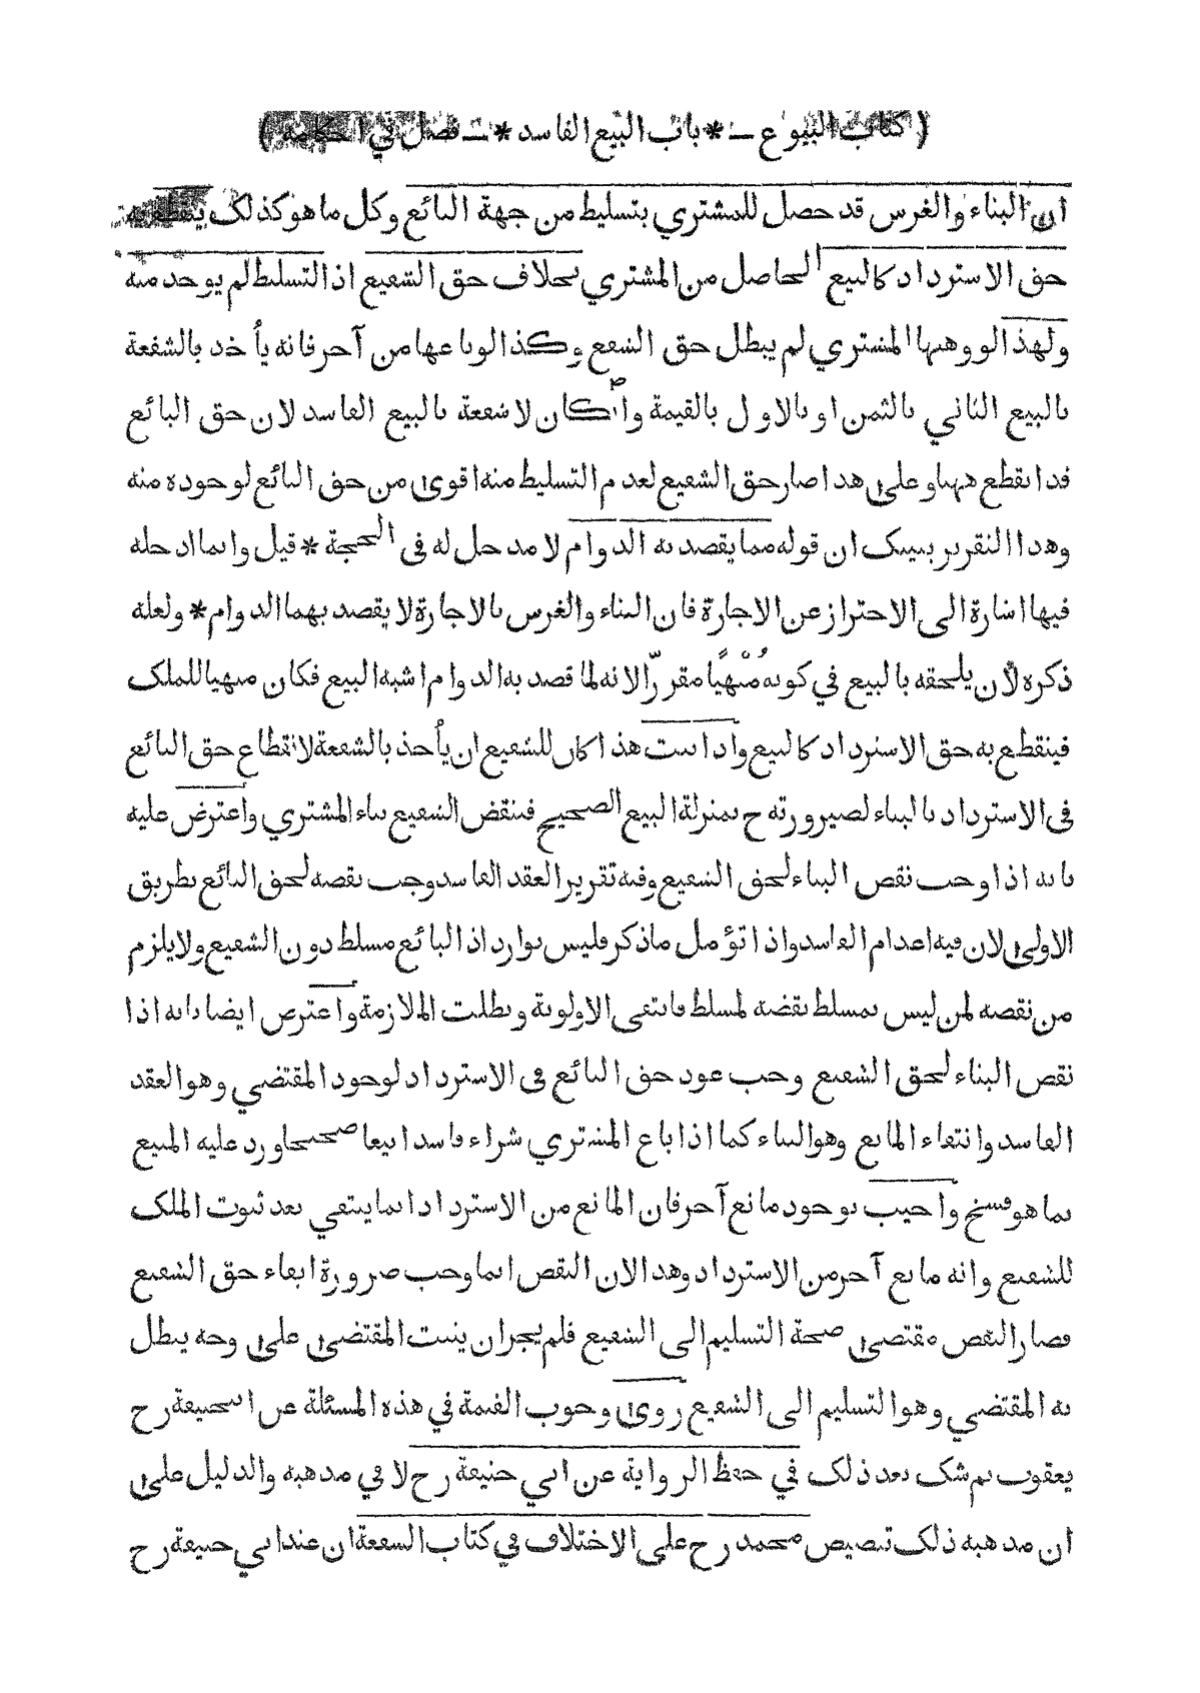 ( كتاب البيوع — * باب البيع الفاسد * — فصل في احكامه )
ان البناء والغرس قد حصل للمشتري بتسليط من جهة البائع وكل ما هو كذلك ينقطع به
حق الاسترداد كالبيع الحاصل من المشتري بخلاف حق الشفيع اذ التسليط لم يوجد منه
ولهذا لو وهبها المشتري لم يبطل حق الشفيع وكذا لو باعها من آخر فانه يأخذ بالشفعة
بالبيع الثاني بالثمن او بالاول بالقيمة وان كان لا شفعة بالبيع الفاسد لان حق البائع
قد انقطع ههنا وعلى هذا صار حق الشفيع لعدم التسليط منه اقوى من حق البائع لوجوده منه
وهذا التقرير يبينك ان قوله مما يقصد به الدوام لا مدخل له في الحجة * قيل وانما ادخله
فيها اشارة الى الاحتراز عن الاجارة فان البناء والغرس بالاجارة لا يقصد بهما الدوام * ولعله
ذكره لأن يلحقه بالبيع في كونه مُنْهِيًا مقررّا لانه لما قصد به الدوام اشبه البيع فكان منهيا للملك
فينقطع به حق الاسترداد كالبيع واذا ثبت هذا كان للشفيع ان يأخذ بالشفعة لانقطاع حق البائع
في الاسترداد بالبناء لصيرورته ح بمنزلة البيع الصحيح فينقض الشفيع بناء المشتري واعترض عليه
بانه اذا وجب نقض البناء لحق الشفيع وفيه تقرير العقد الفاسد وجب نقضه لحق البائع بطريق
الاولى لان فيه اعدام الفاسد واذا تؤمل ما ذكر فليس بوارد اذ البائع مسلط دون الشفيع ولا يلزم
من نقضه لمن ليس بمسلط نقضه لمسلط فانتفى الاولوية وبطلت الملازمة واعترض ايضا بانه اذا
نقض البناء لحق الشفيع وجب عود حق البائع في الاسترداد لوجود المقتضي وهو العقد
الفاسد وانتفاء المانع وهو البناء كما اذا باع المشتري شراء فاسدا بيعا صحيحا ورد عليه المبيع
بما هو فسخ واجيب بوجود مانع آخر فان المانع من الاسترداد انما ينتفي بعد ثبوت الملك
للشفيع وانه مانع آخر من الاسترداد وهذا لان النقض انما وجب ضرورة ايفاء حق الشفيع
فصار النقض مقتضى صحة التسليم الى الشفيع فلم يجز ان يثبت المقتضى على وجه يبطل
به المقتضي وهو التسليم الى الشفيع روى وجوب القيمة في هذه المسئلة عن ابيحنيفة رح
يعقوب ثم شك بعد ذلك في حفظ الرواية عن ابي حنيفة رح لا في مذهبه والدليل على
ان مذهبه ذلك تنصيص محمد رح على الاختلاف في كتاب الشفعة ان عند ابي حنيفة رح